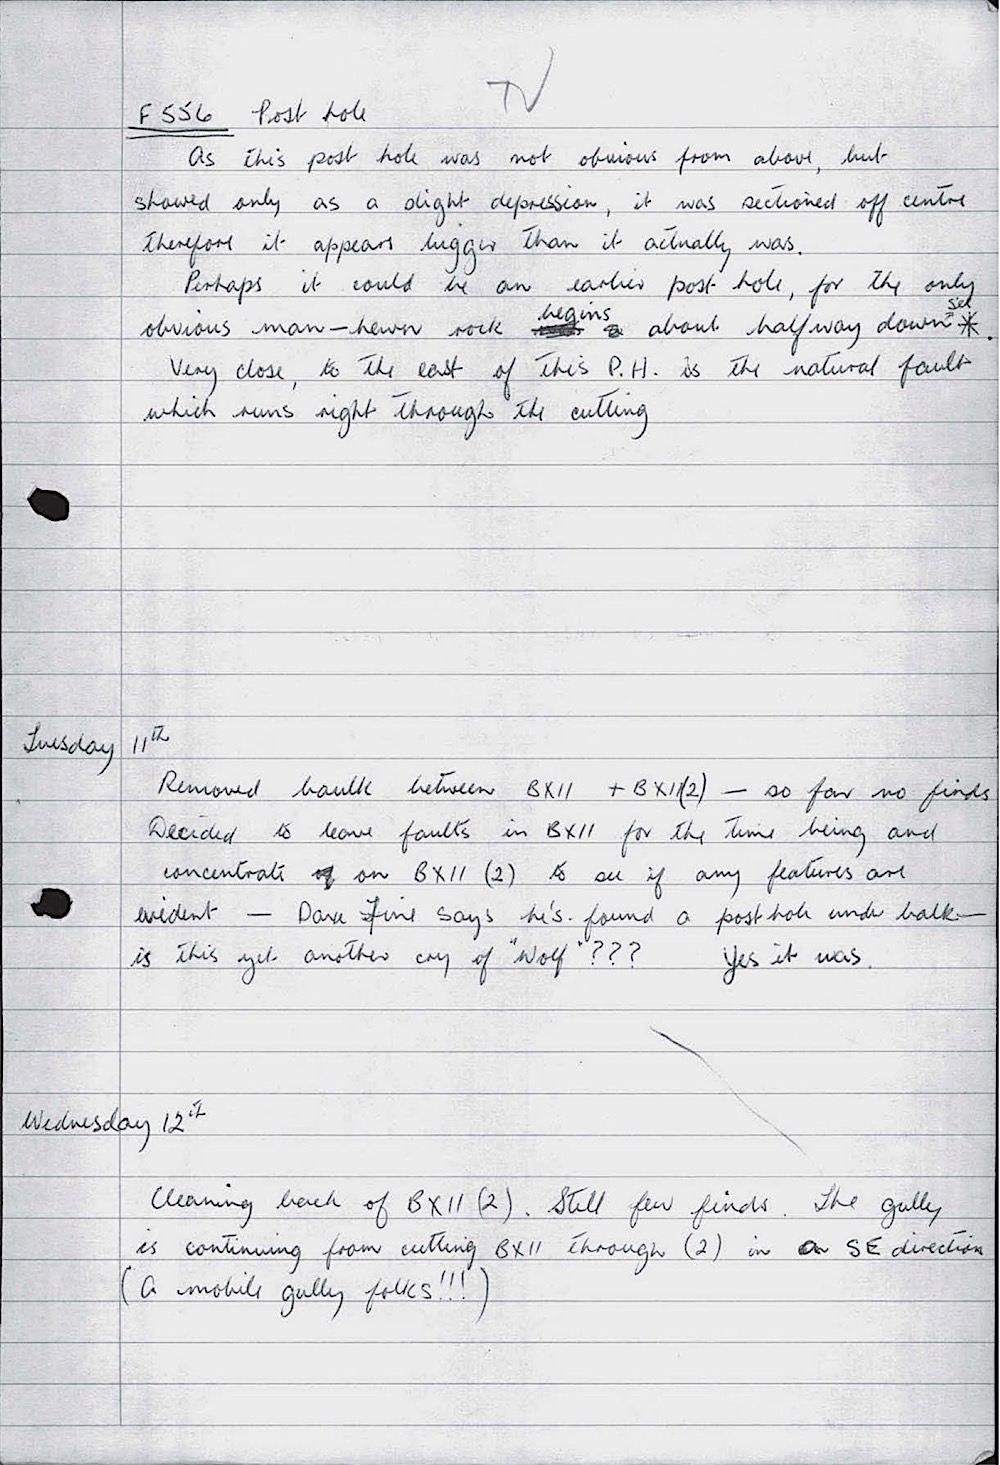 TV
F 556 Post hole
As this post hole was not obvious from above, but
showed only as a slight depression, it was sectioned off centre
therefore it appears bigger than it actually was.
Perhaps it could be an earlier post hole, for the only
obvious man-hewn rock begins about halfway down see *.
Very close, to the east of this P.H. is the natural fault
which runs right through the cutting
Tuesday 11th
Removed baulk between BX11 + BX11(2) — so far no finds
Decided to leave faults in BX11 for the time being and
concentrate on BX11 (2) to see if any features are
evident — Dave Fine says he's found a posthole under balk —
is this yet another cry of "Wolf"??? Yes it was.
Wednesday 12th
Cleaning back of BX11 (2). Still few finds. The gully
is continuing from cutting BX11 through (2) in a SE direction
(A mobile gully folks!!!)